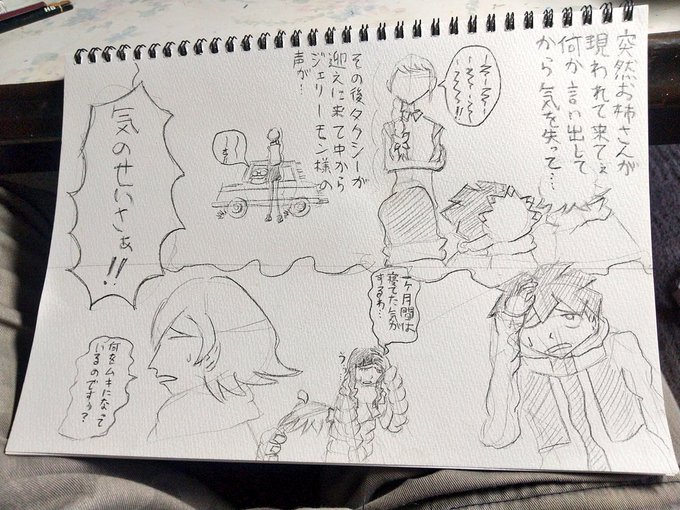 突然お姉さんが
現われて来てぇ
何か言い出して
から気を失って…
その後タクシーが
迎えに来て中から
ジェリーモン様の
声が…
気のせいさぁ!!
一ヶ月間は
寝てた気が
するわ…
う
何をムキになって
いるのですぅ?